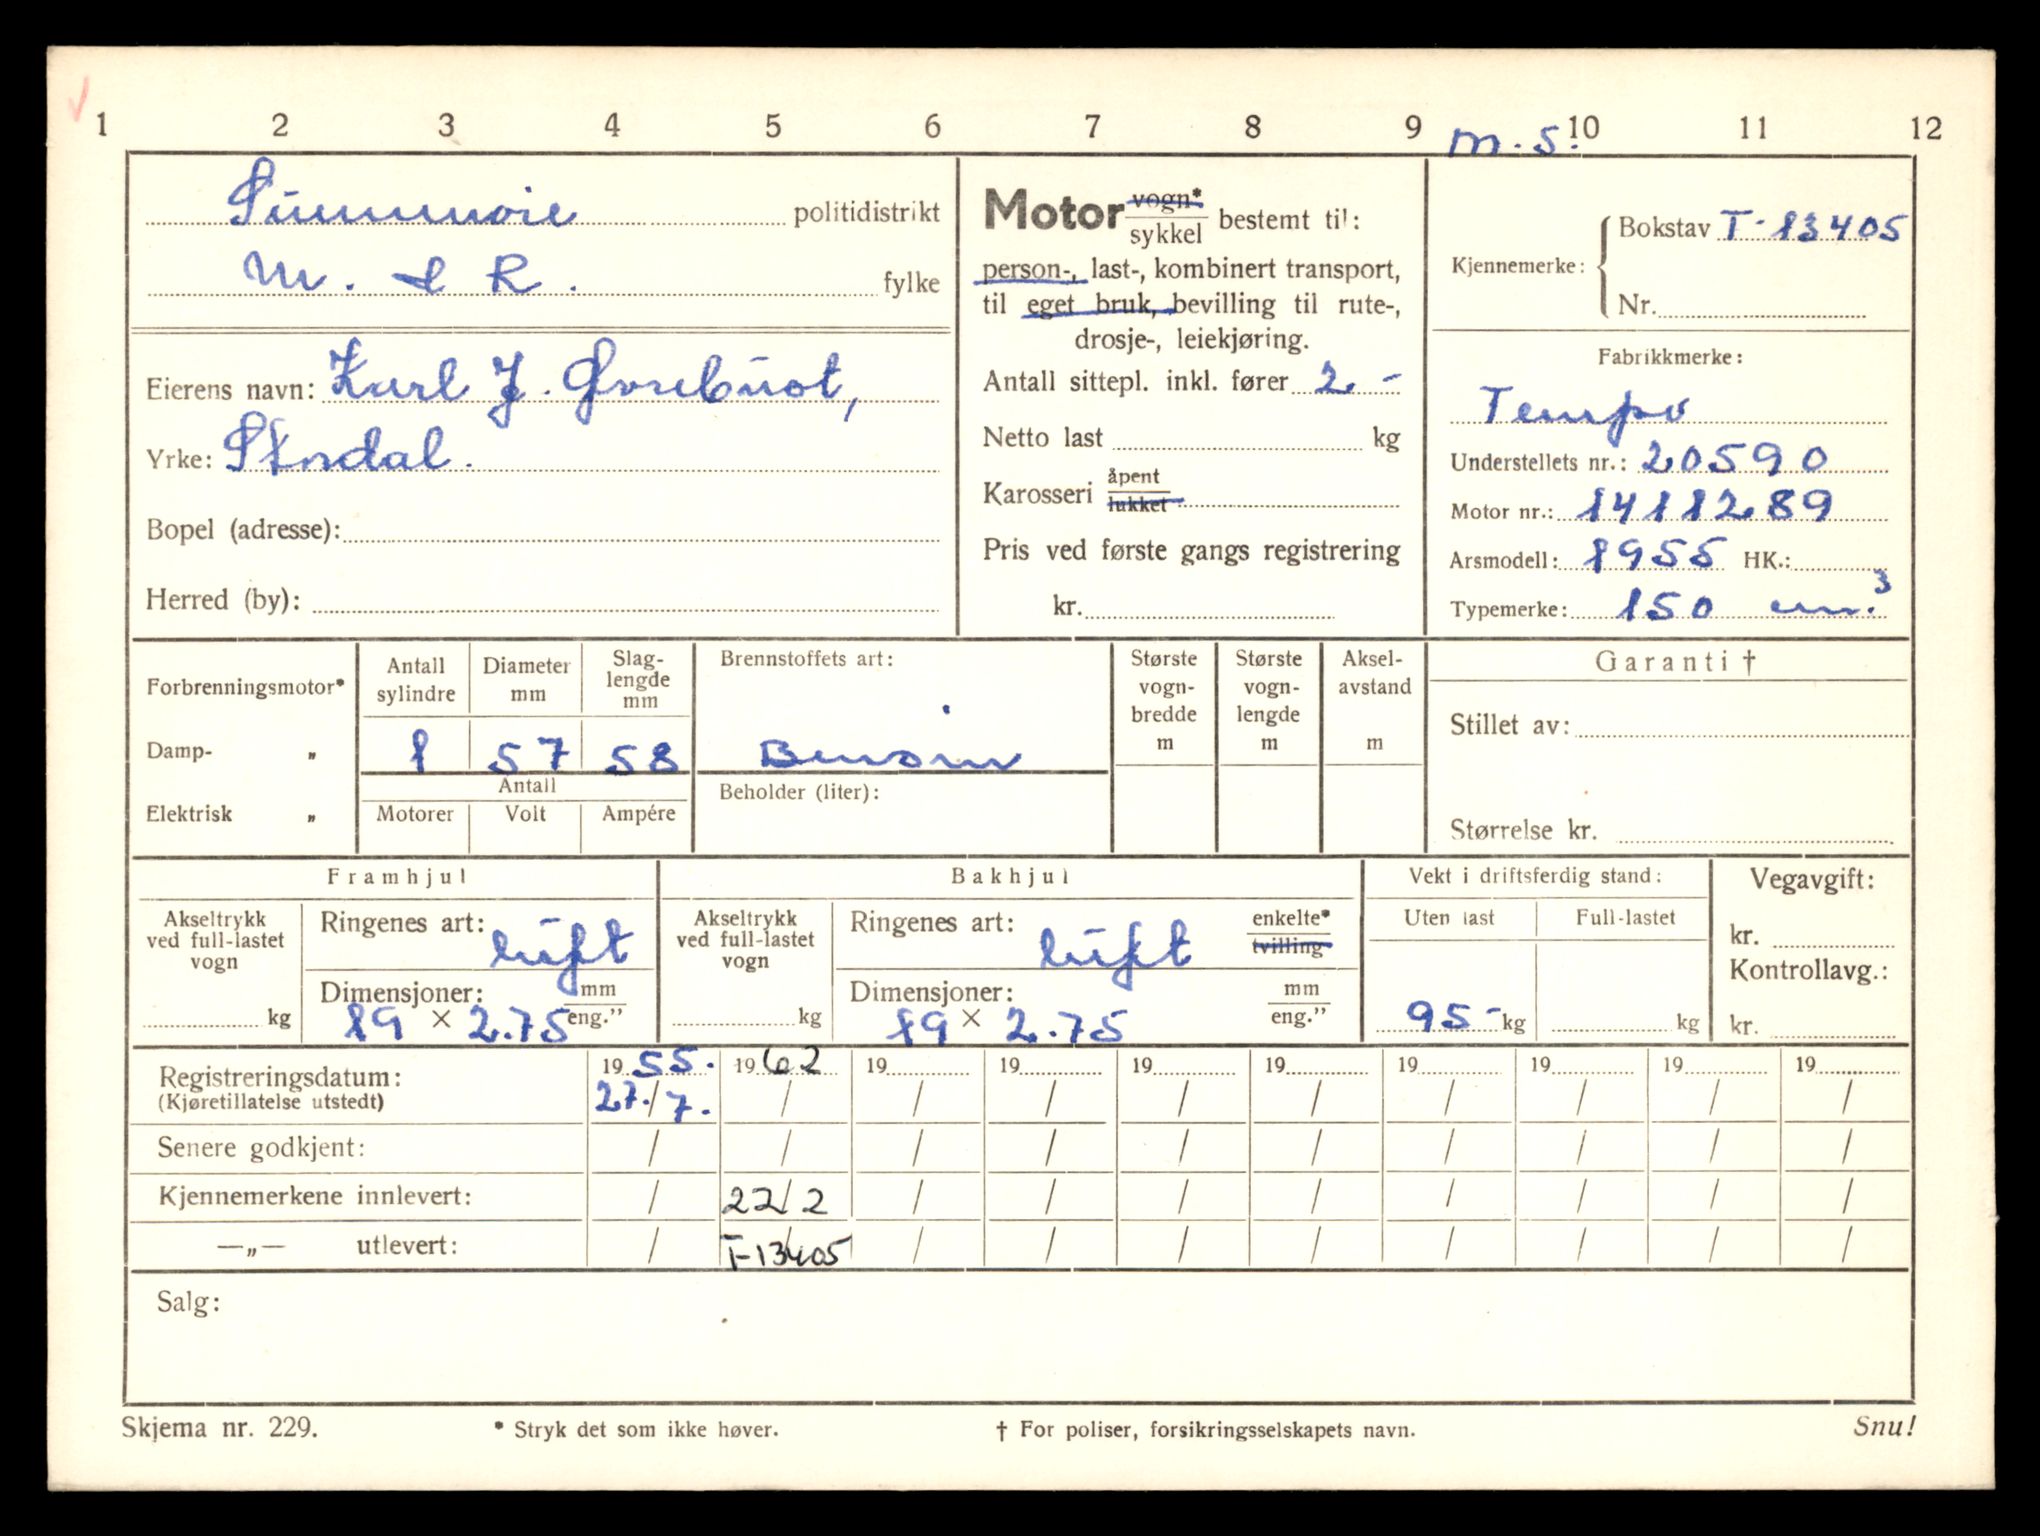 1 2 3 4 5 6 7 8 9 10 11 12
m.s.
Sunnmøre politidistrikt
M. & R. fylke
Eierens navn: Karl J. Øvrebust,
Yrke: Stordal.
Bopel (adresse):
Herred (by):
Motor vogn* / sykkel bestemt til:
person-, last-, kombinert transport,
til eget bruk, bevilling til rute-,
drosje-, leiekjøring.
Antall sittepl. inkl. fører 2.-
Netto last kg
Karosseri åpent / lukket
Pris ved første gangs registrering
kr.
Kjennemerke: Bokstav T-13405
Nr.
Fabrikkmerke:
Tempo
Understellets nr.: 20590
Motor nr.: 1411289
Arsmodell: 1955 HK.:
Typemerke: 150 cm.³
Forbrenningsmotor*
Damp- „
Elektrisk „
Antall sylindre Diameter mm Slag-lengde mm
1 57 58
Antall
Motorer Volt Ampére
Brennstoffets art:
Bensin
Beholder (liter):
Største vogn-bredde m
Største vogn-lengde m
Aksel-avstand m
Garanti †
Stillet av:
Størrelse kr.
Framhjul
Akseltrykk ved full-lastet vogn
kg
Ringenes art: luft
Dimensjoner: mm / eng."
19 × 2.75
Bakhjul
Akseltrykk ved full-lastet vogn
kg
Ringenes art: luft enkelte* / tvilling
Dimensjoner: mm / eng."
19 × 2.75
Vekt i driftsferdig stand:
Uten last Full-lastet
95- kg kg
Vegavgift:
kr.
Kontrollavg.:
kr.
Registreringsdatum: 19 55. 19 62 19 19 19 19 19 19 19 19
(Kjøretillatelse utstedt) 27./7. / / / / / / / / /
Senere godkjent: / / / / / / / / / /
Kjennemerkene innlevert: / 22/2 / / / / / / / /
—„— utlevert: / T-13405 / / / / / / / /
Salg:
Skjema nr. 229. * Stryk det som ikke høver. † For poliser, forsikringsselskapets navn. Snu!